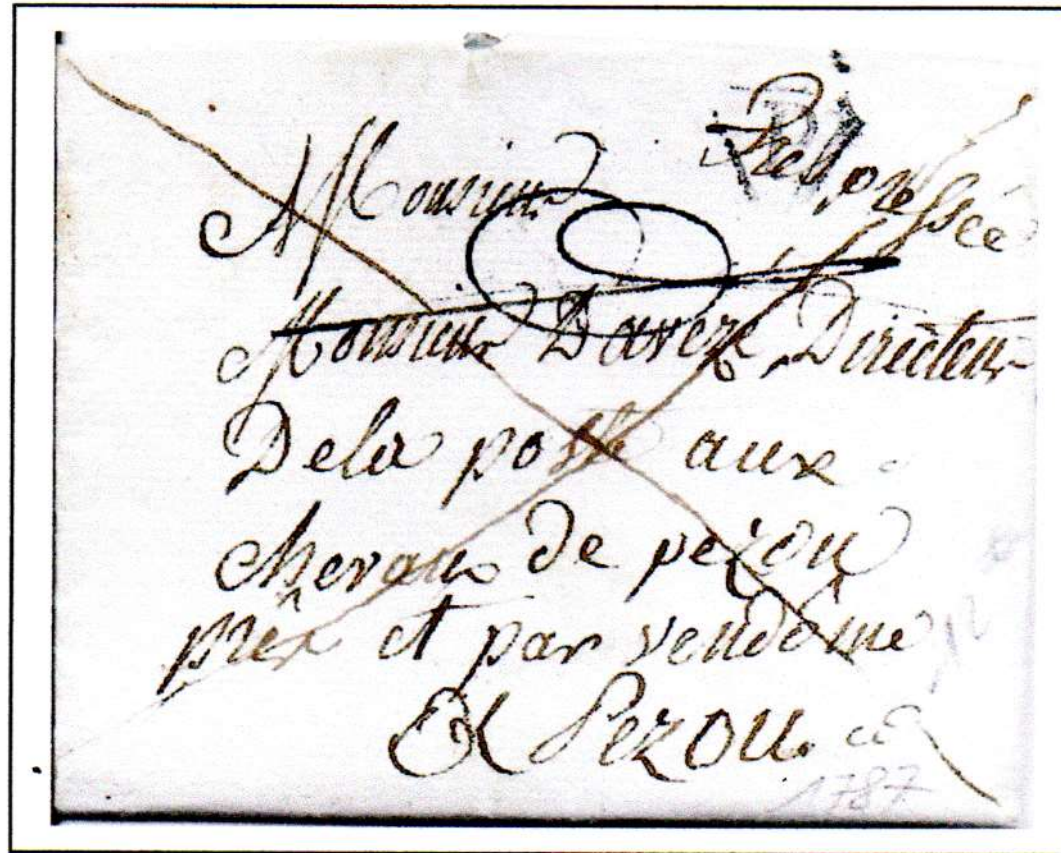 Très pressée
A Monsieur
Monsieur Davezé, Directeur
De la poste aux
chevaux de pezou
près et par vendôme
A Pezou
1787